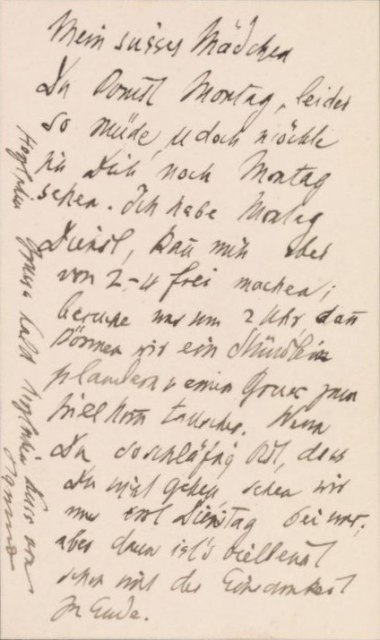 Mein süsses Mädchen
Du kommst Montag, leider
so müde, u doch möchte
ich Dich noch Montag
sehen. Ich habe Montag
Dienst, kann mich aber
von 2-4 frei machen;
komme nur um 2 Uhr, dann
können wir ein Stündchen
plaudern u einen Gruss zum
Willkomm tauschen. Wenn
Du so schläfrig bist, dass
Du nicht gehen, sehen wir
uns erst Dienstag bei mir,
aber dann ist's vielleicht
schon mit der Einsamkeit
zu Ende.
Grüsse